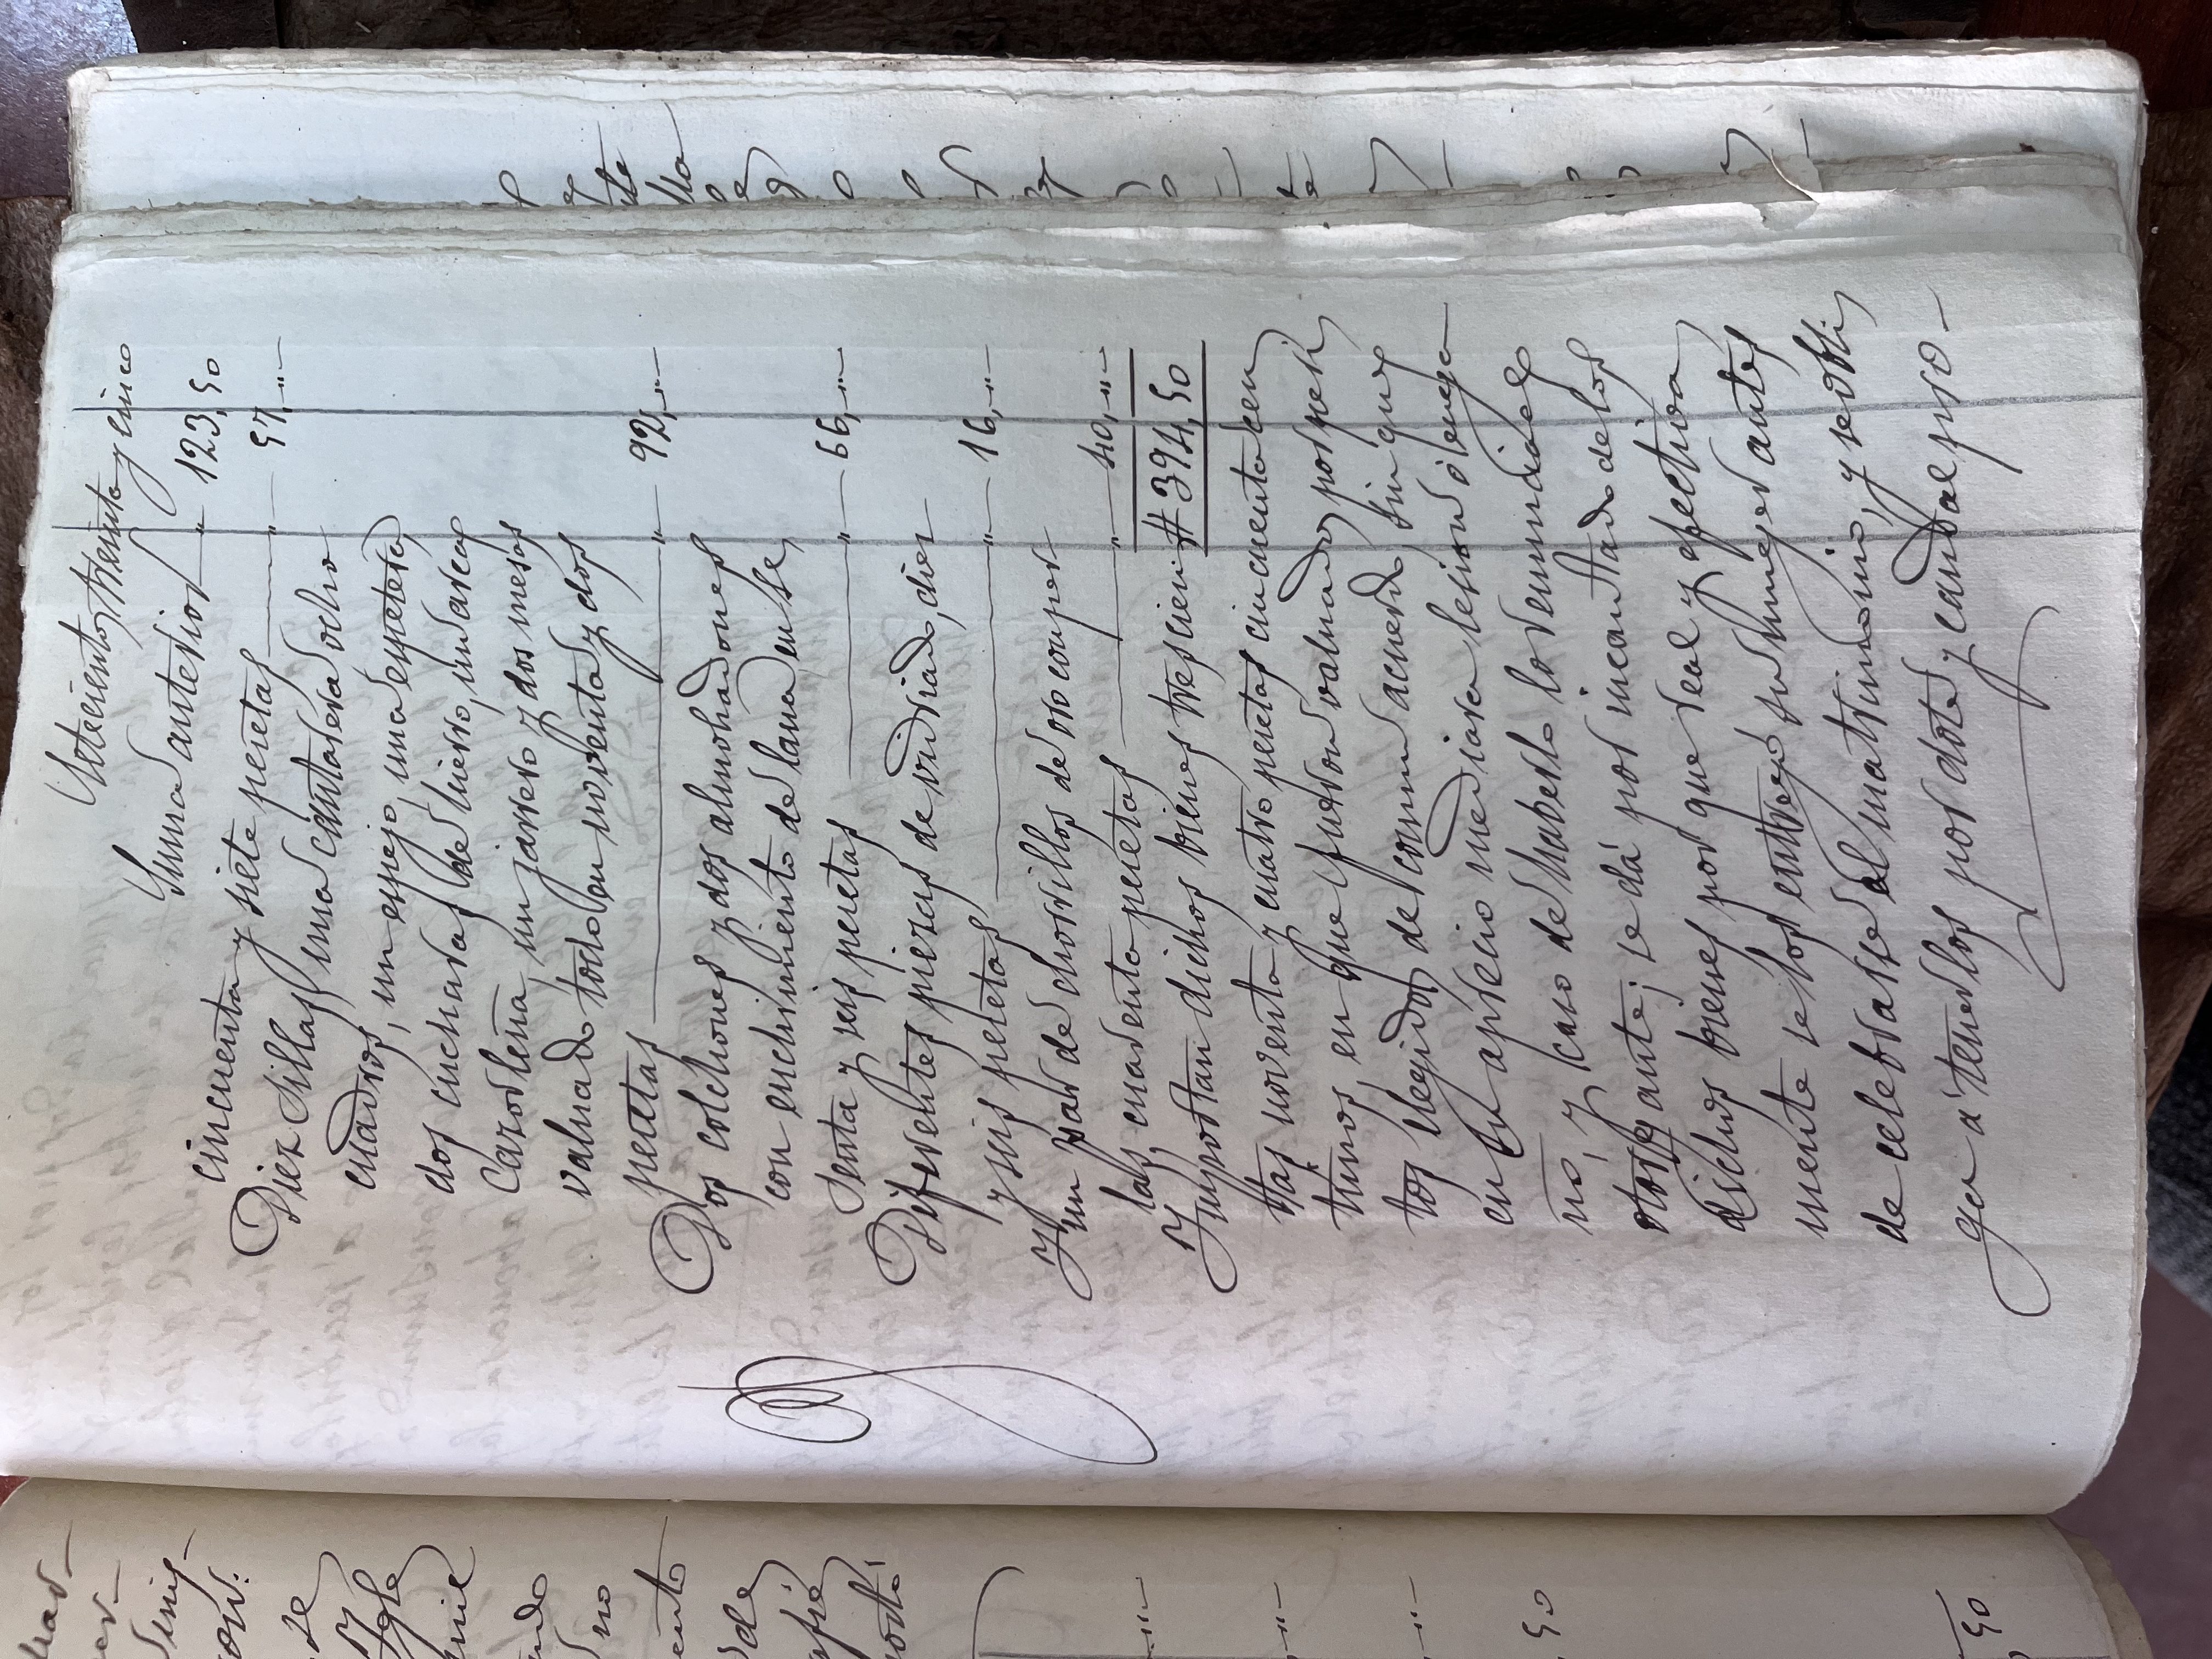 Setecientos treinta y cinco
Suma anterior " 123,50
cincuenta y siete pesetas " 57,"
Diez sillas, una cantarera, ocho
cuadros, un espejo, una espetera,
dos cucharas de hierro, un arca,
un jarrero y dos mesas
valuado todo en noventa y dos
pesetas " 92,"
Dos colchones y dos almohadones
con enchimiento de lana, en se,
senta y seis pesetas " 66,"
Diferentes piezas de vidriado, diez
y seis pesetas " 16,"
Y un par de chorrillos de oro con per
las, cuadenta pesetas " 40,"
Ymportan dichos bienes trescien # 394,50
tas noventa y cuatro pesetas cincuenta cen
timos, en que fueron valuados por peri
tos elegidos de comun acuerdo sin que
en su aprecio mediara lesion ó enga
ño, y caso de haberlo lo renuncia el
otorgante; se dá por incautado de los
dichos bienes por que real y efectiva
mente se los entregó su muger antes
de celebrarse el matrimonio, y se obli,
ga á tenerlos por dote y caudal pro-